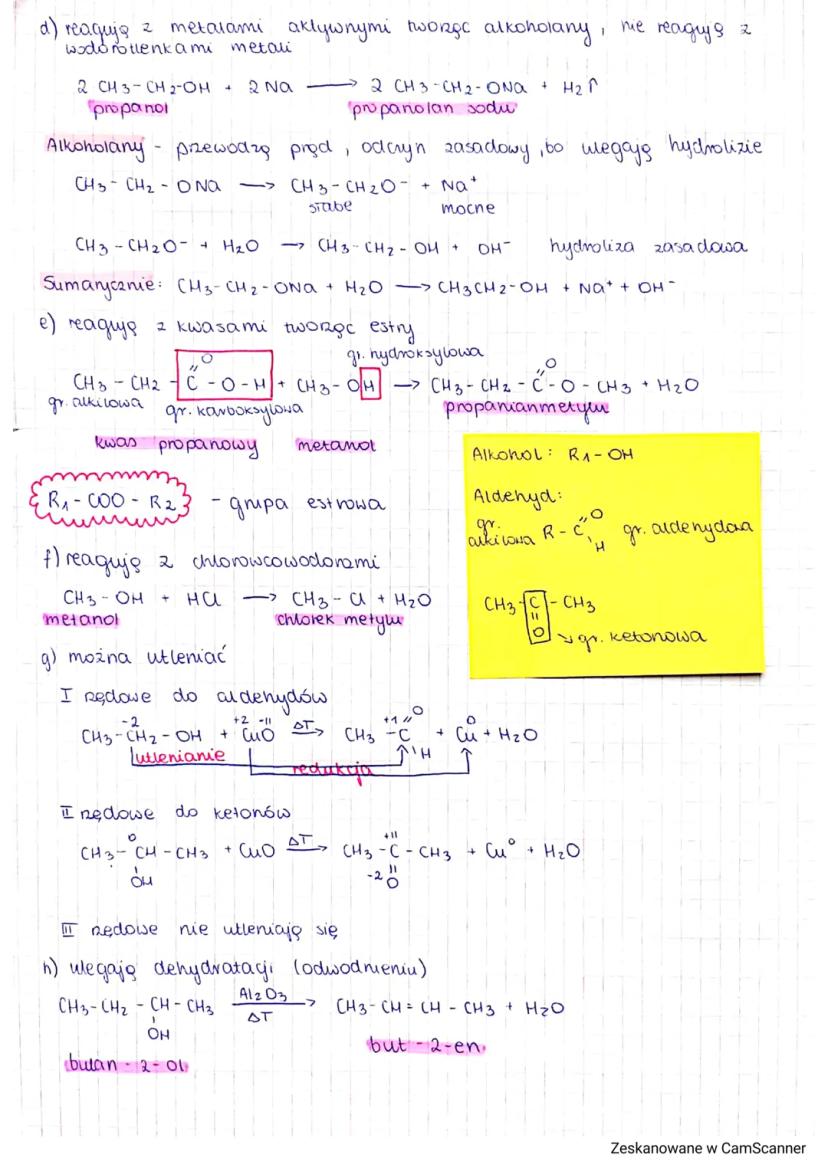 d) reagują z metalami aktywnymi tworząc alkoholany, nie reagują z
wodorotlenkami metali
2 CH3-CH2-OH + 2 Na ⟶ 2 CH3-CH2-ONa + H2↑
propanol propanolan sodu
Alkoholany - przewodzą prąd, odczyn zasadowy, bo ulegają hydrolizie
CH3-CH2-ONa ⟶ CH3-CH2O⁻ + Na⁺
słabe mocne
CH3-CH2O⁻ + H2O → CH3-CH2-OH + OH⁻ hydroliza zasadowa
Sumarycznie: CH3-CH2-ONa + H2O ⟶ CH3CH2-OH + Na⁺ + OH⁻
e) reagują z kwasami tworząc estry
gr. hydroksylowa
O O
CH3-CH2-C-O-H + CH3-OH → CH3-CH2-C-O-CH3 + H2O
gr. alkilowa gr. karboksylowa propanianmetylu
kwas propanowy metanol
R1-COO-R2 - grupa estrowa
f) reagują z chlorowcowodorami
CH3-OH + HCl ⟶ CH3-Cl + H2O
metanol chlorek metylu
Alkohol: R1-OH
Aldehyd:
O
gr. alkilowa R-C gr. aldehydowa
H
CH3-C-CH3
O → gr. ketonowa
g) można utleniać
I rzędowe do aldehydów
-2 +2 -II ΔT +1 O 0
CH3-CH2-OH + CuO → CH3-C + Cu + H2O
H
utlenianie
redukcja
II rzędowe do ketonów
0 ΔT +II
CH3-CH-CH3 + CuO → CH3-C-CH3 + Cu⁰ + H2O
OH -2 O
III rzędowe nie utleniają się
h) ulegają dehydratacji (odwodnieniu)
CH3-CH2-CH-CH3 Al2O3 → CH3-CH=CH-CH3 + H2O
OH ΔT
but-2-en
butan-2-ol
Zeskanowane w CamScanner